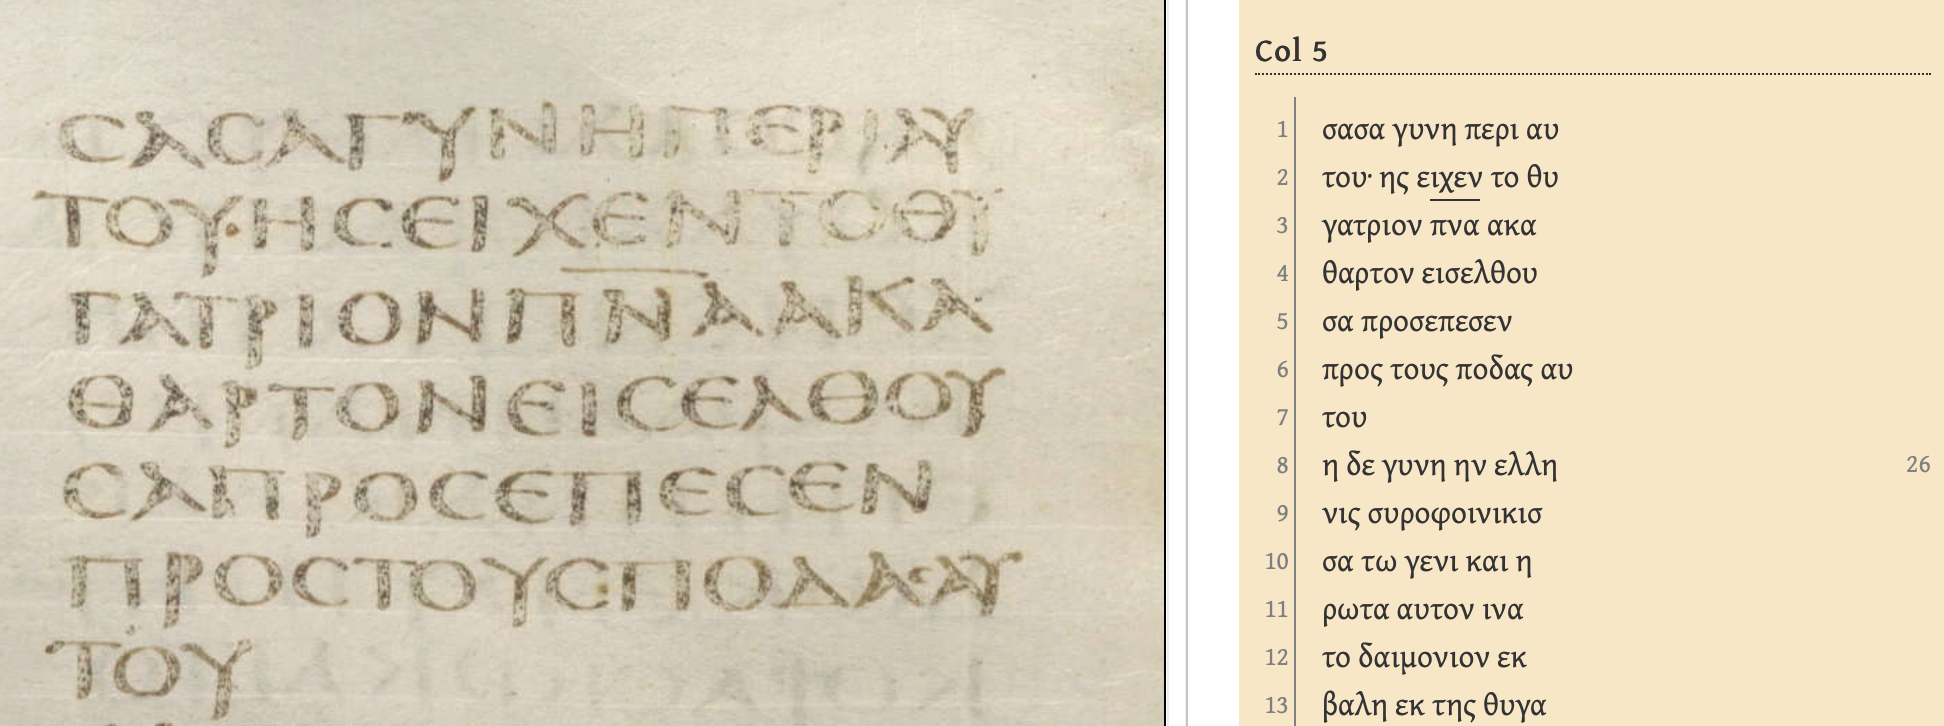 CΑCΑΓΥΝΗΠΕΡΙΑΥ
ΤΟΥ·ΗCΕΙΧΕΝΤΟΘΥ
ΓΑΤΡΙΟΝΠ̅Ν̅Α̅ΑΚΑ
ΘΑΡΤΟΝΕΙCΕΛΘΟΥ
CΑΠΡΟCΕΠΕCΕΝ
ΠΡΟCΤΟΥCΠΟΔΑCΑΥ
ΤΟΥ
Col 5
1 σασα γυνη περι αυ
2 του· ης ειχεν το θυ
3 γατριον πνα ακα
4 θαρτον εισελθου
5 σα προσεπεσεν
6 προς τους ποδας αυ
7 του
8 η δε γυνη ην ελλη 26
9 νις συροφοινικισ
10 σα τω γενι και η
11 ρωτα αυτον ινα
12 το δαιμονιον εκ
13 βαλη εκ της θυγα